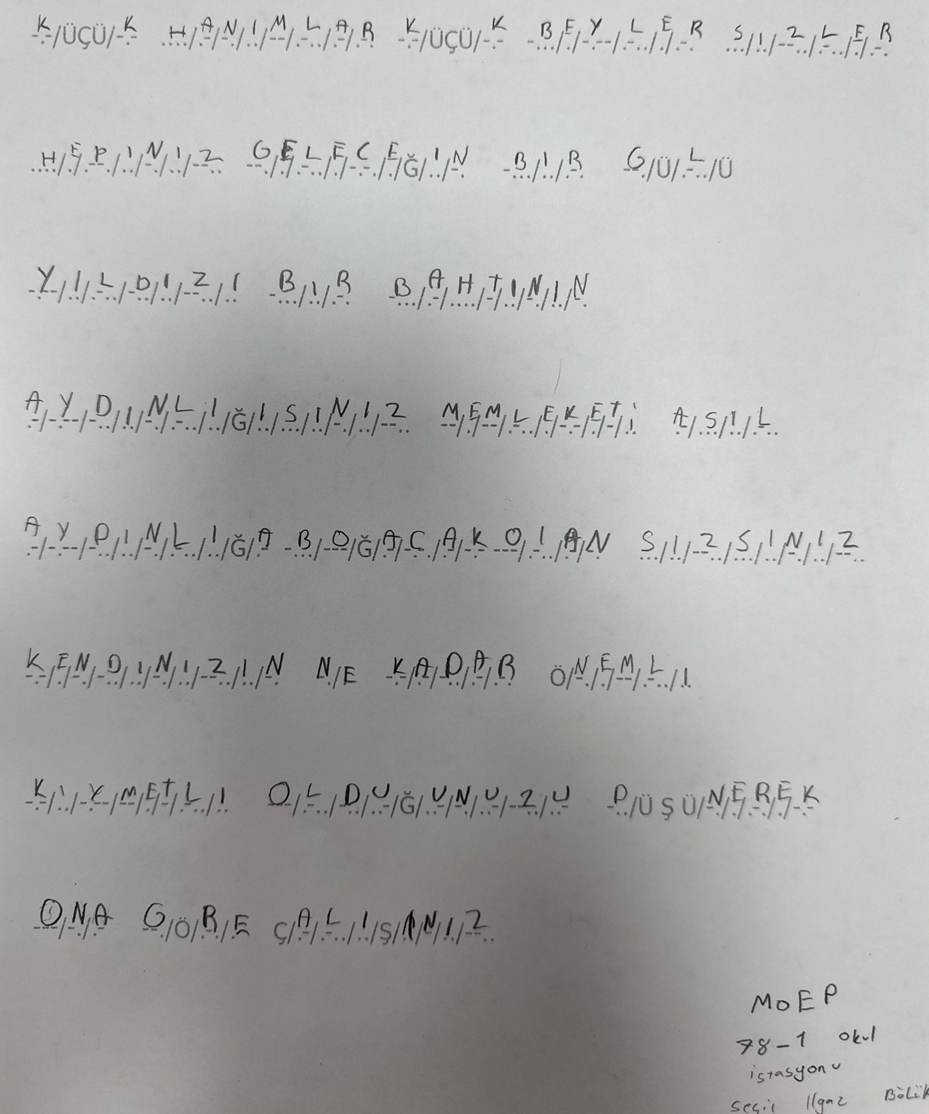 KÜÇÜK HANIMLAR KÜÇÜK BEYLER SIZLER
HEPINIZ GELECEĞIN BIR GÜLÜ
YILDIZI BIR BAHTININ
AYDINLIĞISINIZ MEMLEKETI ASIL
AYDINLIĞA BOĞACAK OLAN SIZSINIZ
KENDINIZIN NE KADAR ÖNEMLI
KIYMETLI OLDUĞUNUZU DÜŞÜNEREK
ONA GÖRE ÇALIŞINIZ
MOEP
78-1 okul
istasyonu
Seçil Ilgaz Bölük